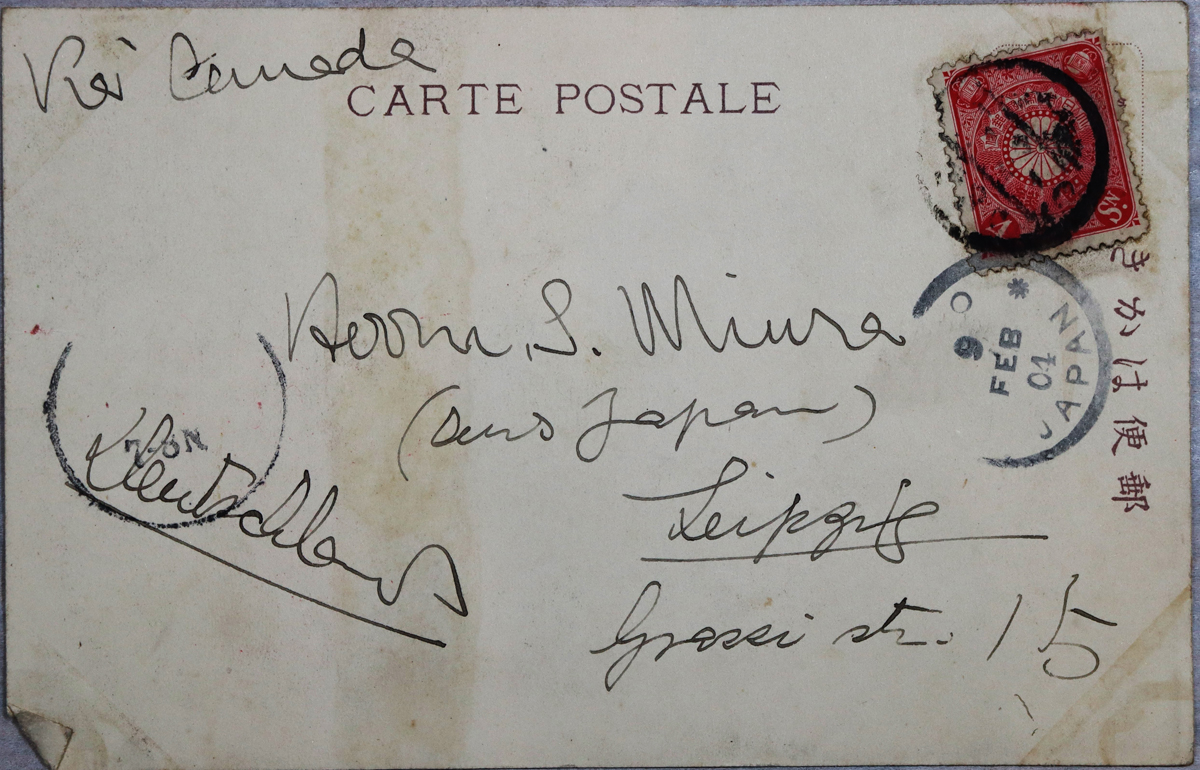 Via Canada
CARTE POSTALE
Herrn S. Miura
(aus Japan)
Leipzig
Grassi str. 15
Deutschland
郵便はかき
9
FEB
04
JAPAN
7-50N
Sn.